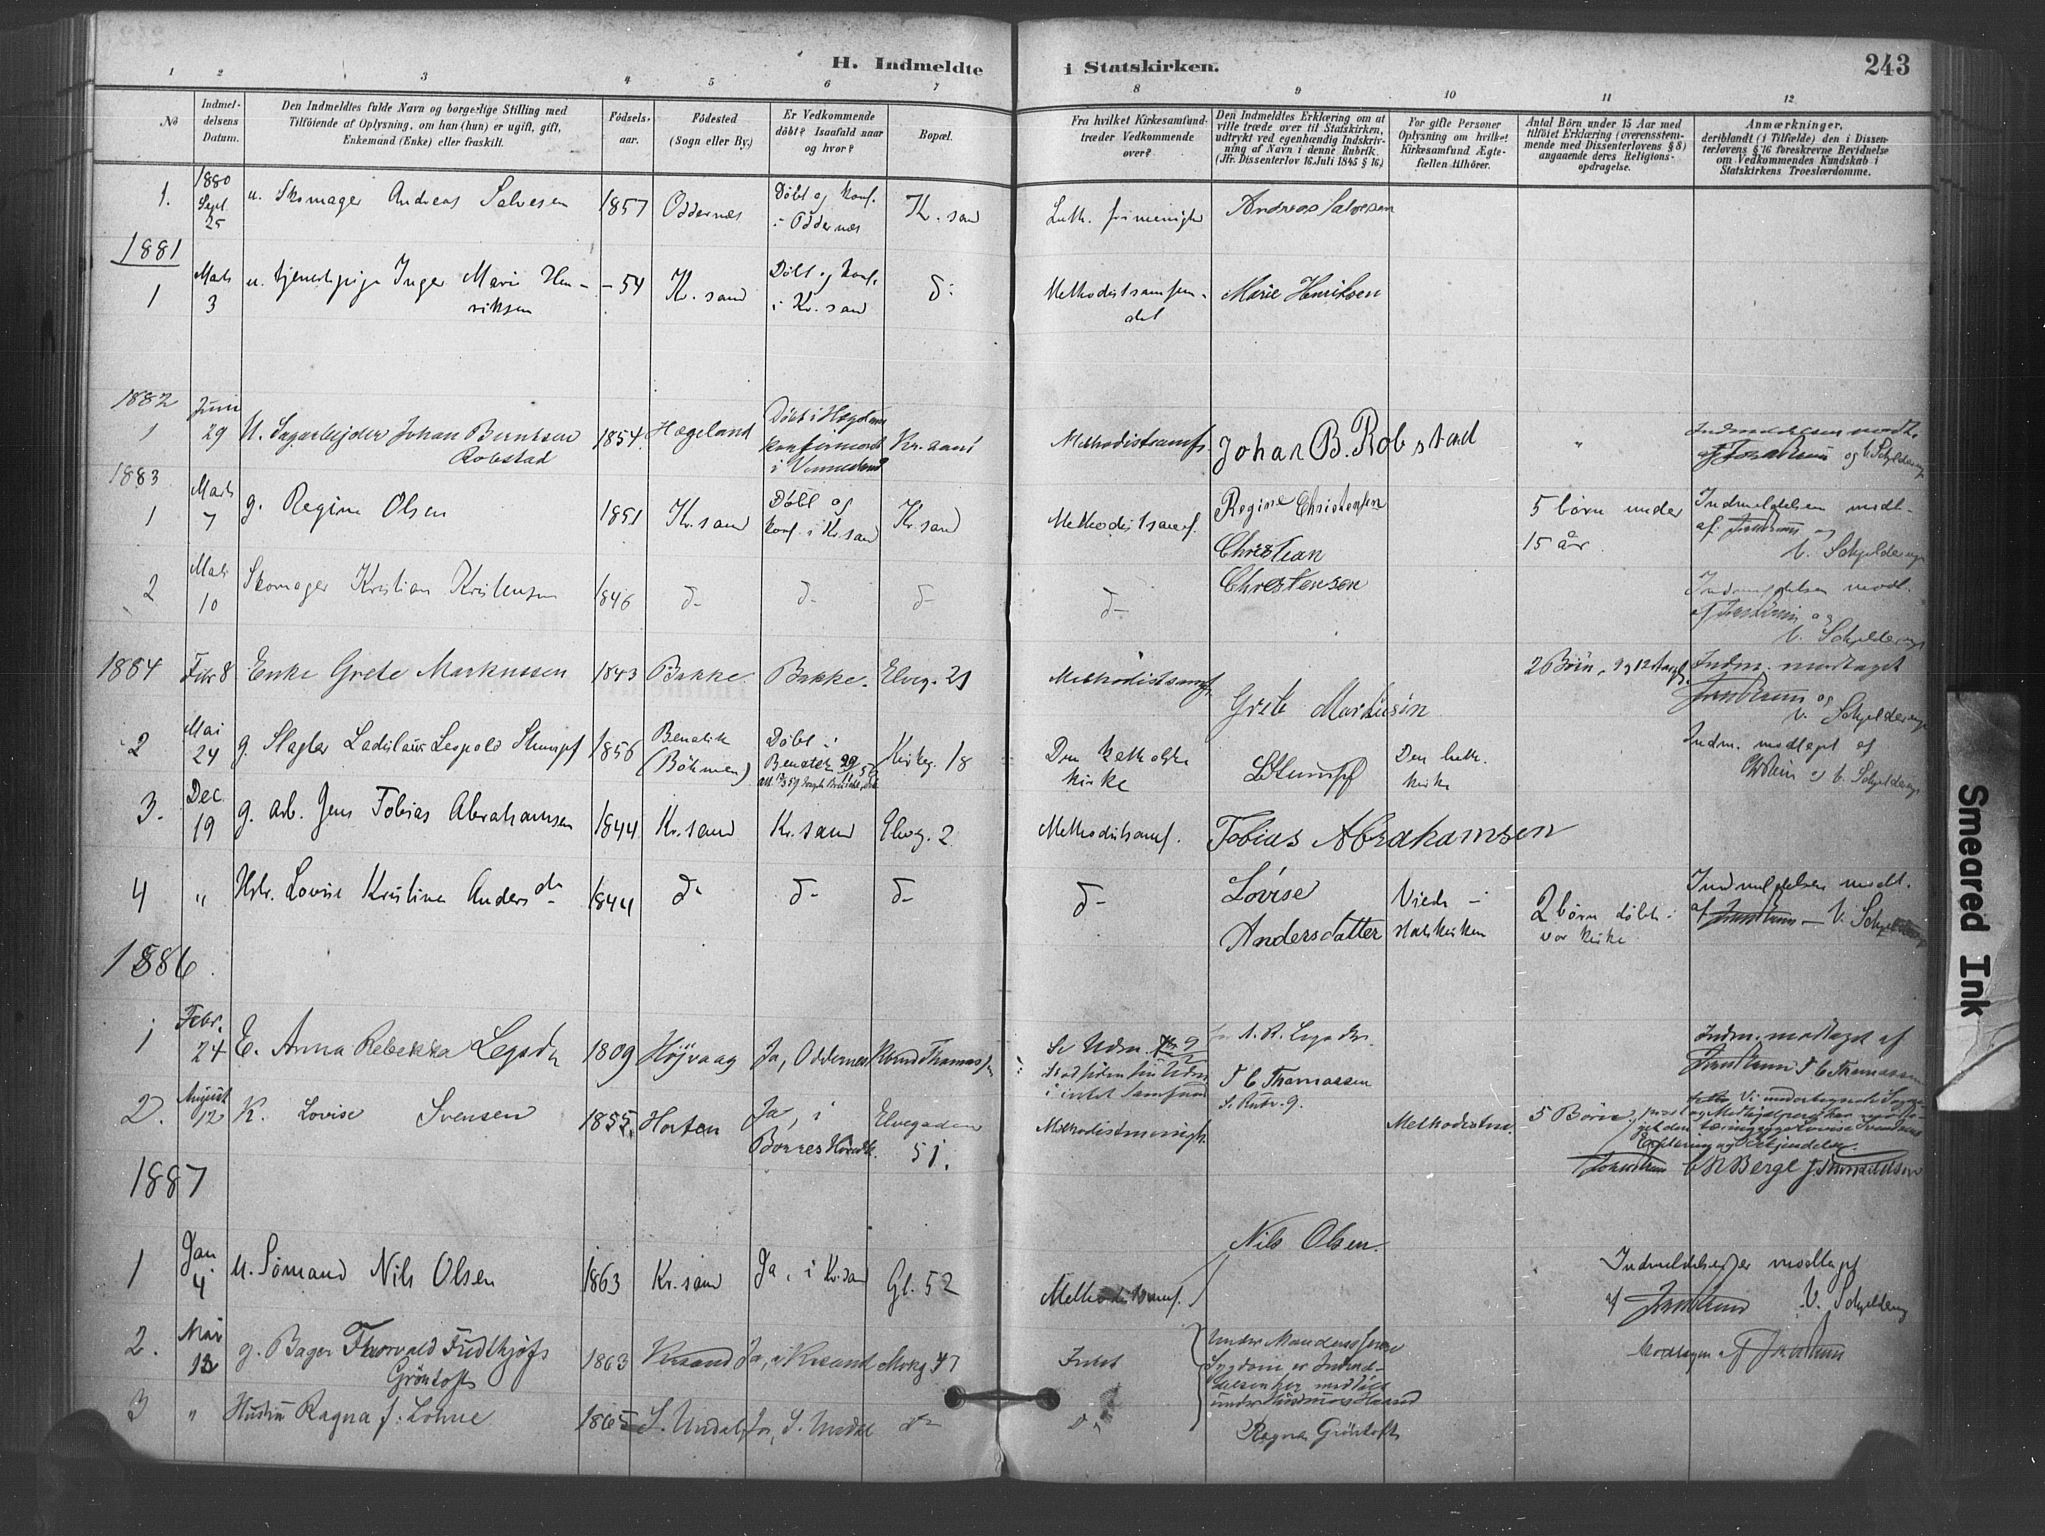 H. Indmeldte i Statskirken. 243
1 2 3 4 5 6 7 8 9 10 11 12
No
Indmeldelsens Datum.
Den Indmeldtes fulde Navn og borgerlige Stilling med Tilföiende af Oplysning, om han (hun) er ugift, gift, Enkemand (Enke) eller fraskilt.
Födselsaar.
Födested (Sogn eller By.)
Er Vedkommende döbt? Isaafald naar og hvor?
Bopæl.
Fra hvilket Kirkesamfund træder Vedkommende over?
Den Indmeldtes Erklæring om at ville træde over til Statskirken, udtrykt ved egenhændig Indskrivning af Navn i denne Rubrik. (Jfr. Dissenterlov 16. Juli 1845 § 16.)
For gifte Personer Oplysning om hvilket Kirkesamfund Ægtefællen tilhörer.
Antal Börn under 15 Aar med tilföiet Erklæring (overensstemmende med Dissenterlovens § 8) angaaende deres Religionsopdragelse.
Anmærkninger, deriblandt (i Tilfælde) den i Dissenterlovens § 16 foreskrevne Bevidnelse om Vedkommendes Kundskab i Statskirkens Troeslærdomme.
1. 1880 Sept 25 u. Skomager Andreas Salvesen 1857 Oddernæs Döbt og konf. i Oddernæs Kr. sand Luth. frimenigh Andreas Salvesen
1881
1 Marts 3 u. tjenestpige Inger Marie Henriksen - 54 Kr. sand Döbt og konf. i Kr. sand d: Methodistsamfundet Marie Henriksen
1882
1 Juni 29 U. Sagarbejder Johan Berntsen Robstad 1854. Hægeland Döbt i Hægeland konfirmeret i Vennesland Kr. sand Methodistsamf. Johan B. Robstad " Indmeldelsen modt. af og V. Schjelderup
1883
1 Marts 7 g. Regine Olsen 1851 Kr. sand Döbt og konf. i Kr. sand Kr. sand Methodistsamf. Regine Christensen 5 børn under 15 år. Indmeldelsen modt. af og V. Schjelderup
2 Marts 10 Skomager Kristian Kristensen 1846 d- d- d- d- Christian Christensen Indmeldelsen modt. af og V. Schjelderup
1884 Febr 8 Enke Grete Markussen 1843 Bakke. Bakke. Elveg. 21 Methodistsamf. Grete Markusen 2 Börn, 9 og 12 Indm. modtaget og V. Schjelderup
2 Mai 24 g. Slagter Ladislaus Leopold Stumpf 1856 Benatek (Böhmen) Döbt i Benatek Kirkeg. 18 Den katholske kirke LStumpf Den luth. kirke Indm. modtaget af og V. Schjelderup
3. Dec 19 g. arb. Jens Tobias Abrahamsen 1844 Kr. sand Kr. sand Elveg. 2 Methodistsamf. Tobias Abrahamsen
4 " Hstr. Lovise Kristine Andersdr 1844 d- d- d- d- Lovise Andersdatter Viede i statskirken 2 børn døbt i vor kirke. Indmeldelsen modt. af V. Schjelderup
1886.
1 Febr. 24 E. Anna Rebekka Legsdr 1809 Höjvaag Ja, Oddernes Knud Thomassen Se Udm. i intet samfund A. R. Legsdr. T C Thomassen Se Rubr. 9. Indm. modtaget af T C Thomassen
2. August 12 K. Lovise Svensen 1855. Horten Ja, i Borres Elvegaden 51. Methodistmenigh. Methodistm. 5 Börn Vi undertegnede C N Berge
1887
1 Jan. 4 U. Sömand Nils Olsen 1863 Kr. sand Ja, i Kr. sand Gl. 52 Methodistsamf. Nils Olsen. Indmeldelsen er modtaget af V. Schjelderup
2. Mai 12 g. Bager Thorvald Fridthjofs Gröntoft 1863 Krsand Ja, i Krsand Intet Under Mandens Sygdom er modtaget
3 " Hustru Ragna f. Lohne 1865 S. Undal Ja, S. Undal d- d- Ragna Gröntoft
Smeared Ink